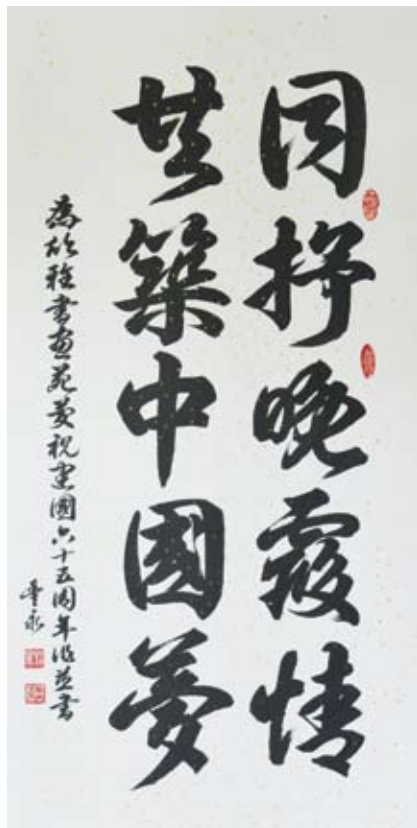 同抒晚霞情
共築中國夢
為書畫苑慶祝建國六十五周年作並書
永